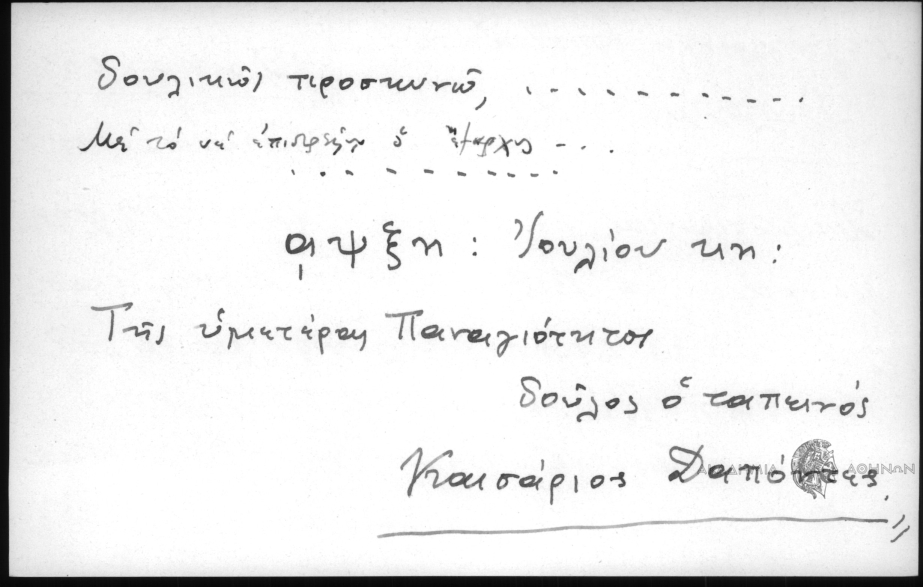 δουλικῶς προσκυνῶ, ............
Μὲ τὸ νὰ ἐπιστρέψῃ ὁ ...
............
͵αψξη : Ἰουλίου κη :
Τῆς ὑμετέρας Παναγιότητος
δοῦλος ὁ ταπεινός
Καισάριος Δαπόντες.
ΑΚΑΔΗΜΙΑ ΑΘΗΝΩΝ